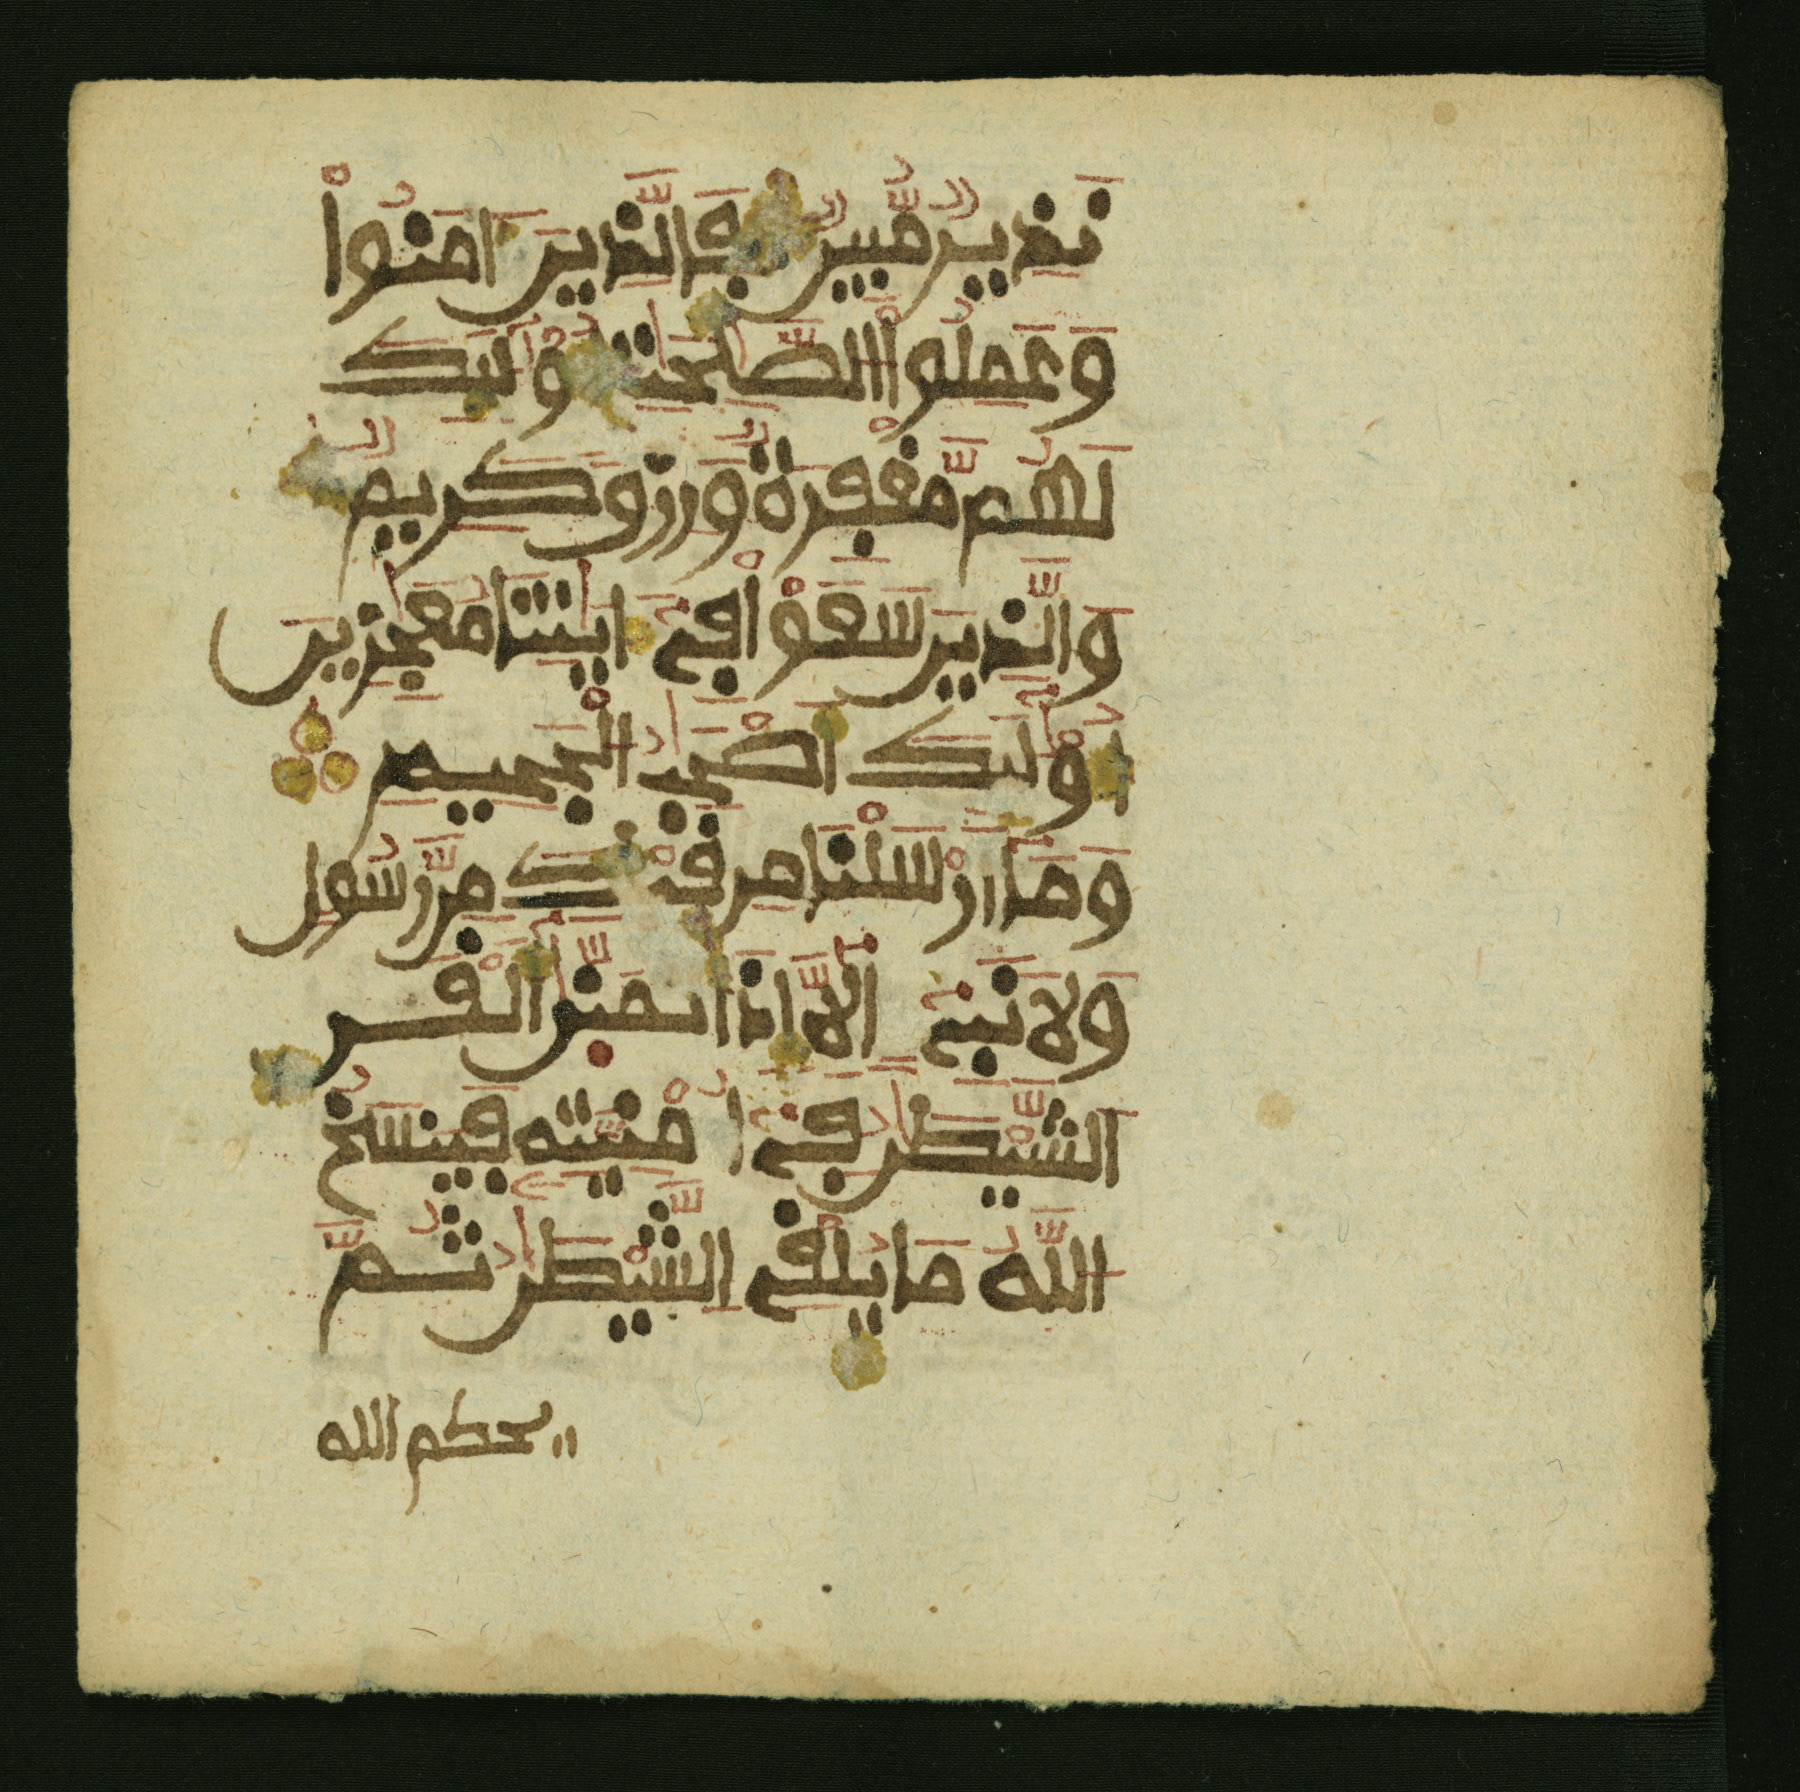 نَذِيرٌ مُّبِينٌ فَالَّذِينَ ءَامَنُواْ
وَعَمِلُواْ الصَّٰلِحَٰتِ أُوْلَٰئِكَ
لَهُم مَّغْفِرَةٌ وَرِزْقٌ كَرِيمٌ
وَالَّذِينَ سَعَوْاْ فِي ءَايَٰتِنَا مُعَٰجِزِينَ
أُوْلَٰئِكَ أَصْحَٰبُ الْجَحِيمِ
وَمَا أَرْسَلْنَا مِن قَبْلِكَ مِن رَّسُولٍ
وَلَا نَبِيءٍ اِلَّا إِذَا تَمَنَّىٰ أَلْقَى
الشَّيْطَٰنُ فِي أُمْنِيَّتِهِ فَيَنسَخُ
اللَّهُ مَا يُلْقِي الشَّيْطَٰنُ ثُمَّ
يحكم الله